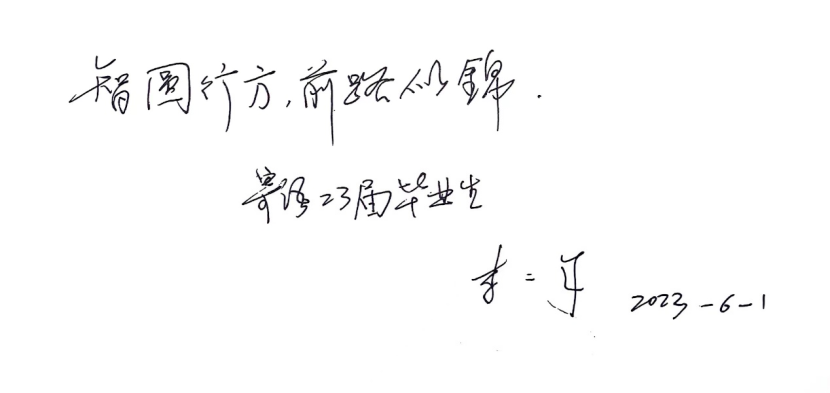 智圆行方,前路似錦.
寄语23届毕业生
李二军 2023-6-1